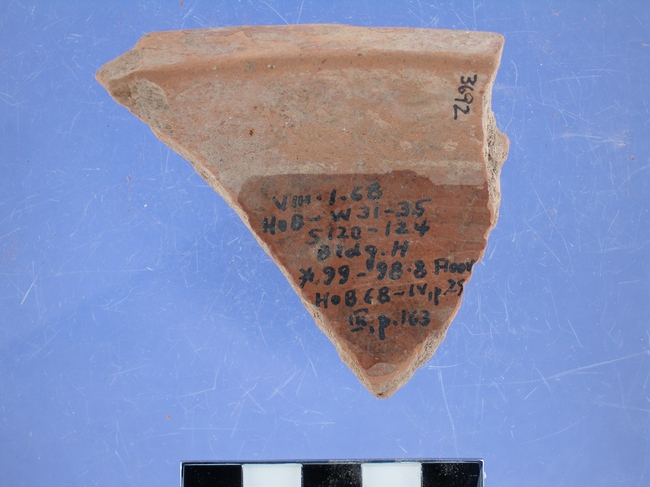 3692
VIII·1·68
HoB-W31-35
S120-124
Bldg.H
*.99-98.8 Floor
HoB 68-IV,p.25
IX,p.163